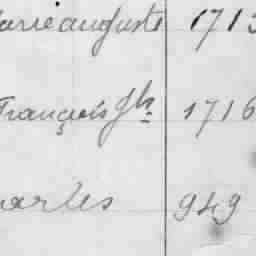 arie auguste 171
François Jh 1716
harles 949